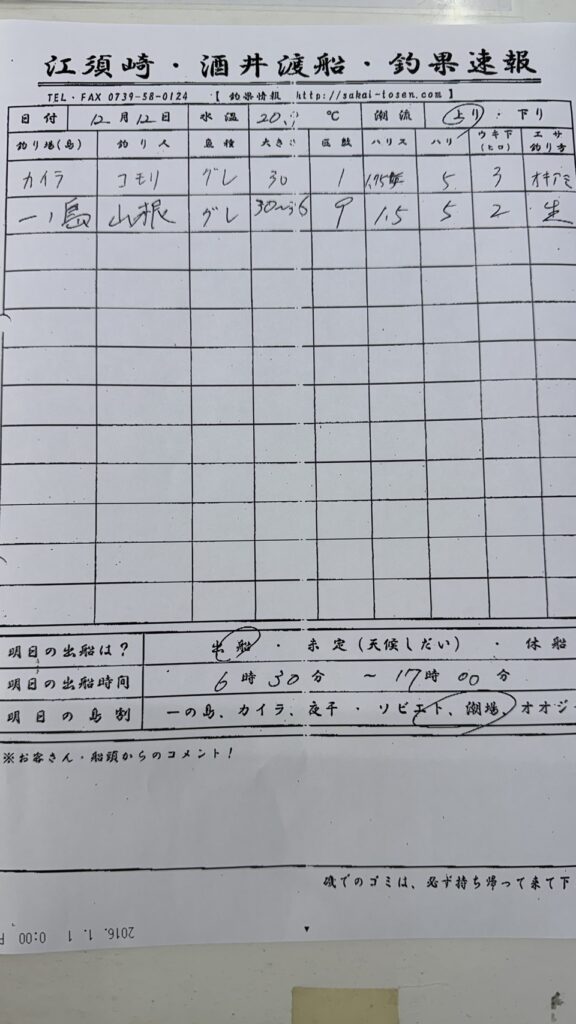 江須崎・酒井渡船・釣果速報
TEL・FAX 0739-58-0124 【 釣果情報 http://sakai-tosen.com 】
日付 12月12日 水温 20. ℃ 潮流 上り : 下り
釣り場(島) 釣り人 魚種 大きさ 匹数 ハリス ハリ ウキ下(ヒロ) エサ釣り方
カイラ コモリ グレ 30 1 1.75 5 3 オキアミ
一ノ島 山根 グレ 30〜36 9 1.5 5 2 生
明日の出船は? 出船 ・ 未定(天候しだい) ・ 休船
明日の出船時間 6時30分 〜17時00分
明日の島割 一の島、カイラ、夜干 ・ ソビエト、潮場、オオジ
※お客さん・船頭からのコメント!
磯でのゴミは、必ず持ち帰って来て下
2016. 1. 1 0:00